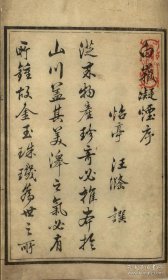 白嶽凝煙序
怡亭 汪滌 譔
從來物產珍奇必推本於
山川蓋其美澤之氣必有
所鍾故金玉珠璣為世之所